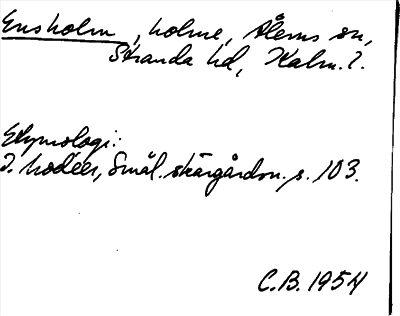 Ensholm, holme, Ålems sn,
Stranda hd, Kalm. l.
Etymologi:
J. Modéer, Smål. skärgårdsn. s. 103.
C.B. 1954